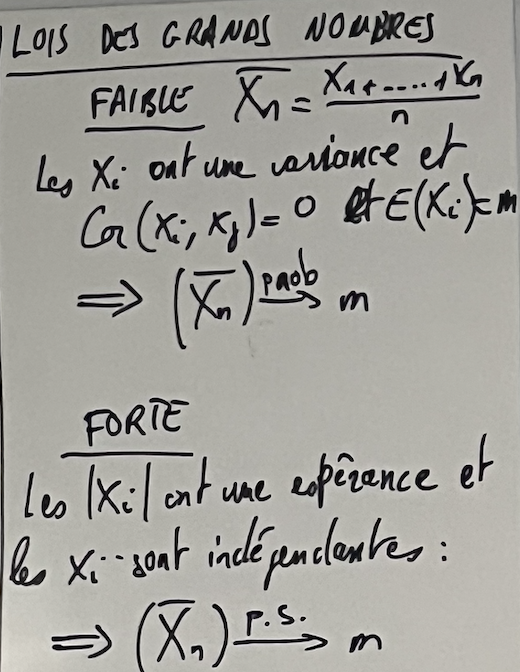 LOIS DES GRANDS NOMBRES
FAIBLE X̅n = X1+....+Xn / n
Les Xi ont une variance et
Cov(Xi, Xj) = 0 et E(Xi) = m
⟹ (X̅n) prob→ m
FORTE
Les |Xi| ont une espérance et
les Xi sont indépendantes :
⟹ (X̅n) p.s.→ m